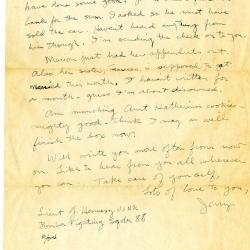 have done some good.
bank for the sum I asked so he must have
sold the car. Haven't heard anything from
him though. I'm sending the check on to you.
Munson just had her appendix out.
Also her sister, is supposed to get
this month. I haven't written for
a month. guess I'm about disowned.
Am munching Aunt Katherine cookies
mighty good. think I may as well
finish the box now.
Will write you more often from now
on. Like to hear from you all whenever
you can. Take care of yourself.
Lots of love to you
Jerry
Lieut J. Hennesy, USNR
Bomber Fighting Sqdn 88